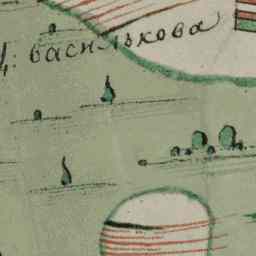 василькова